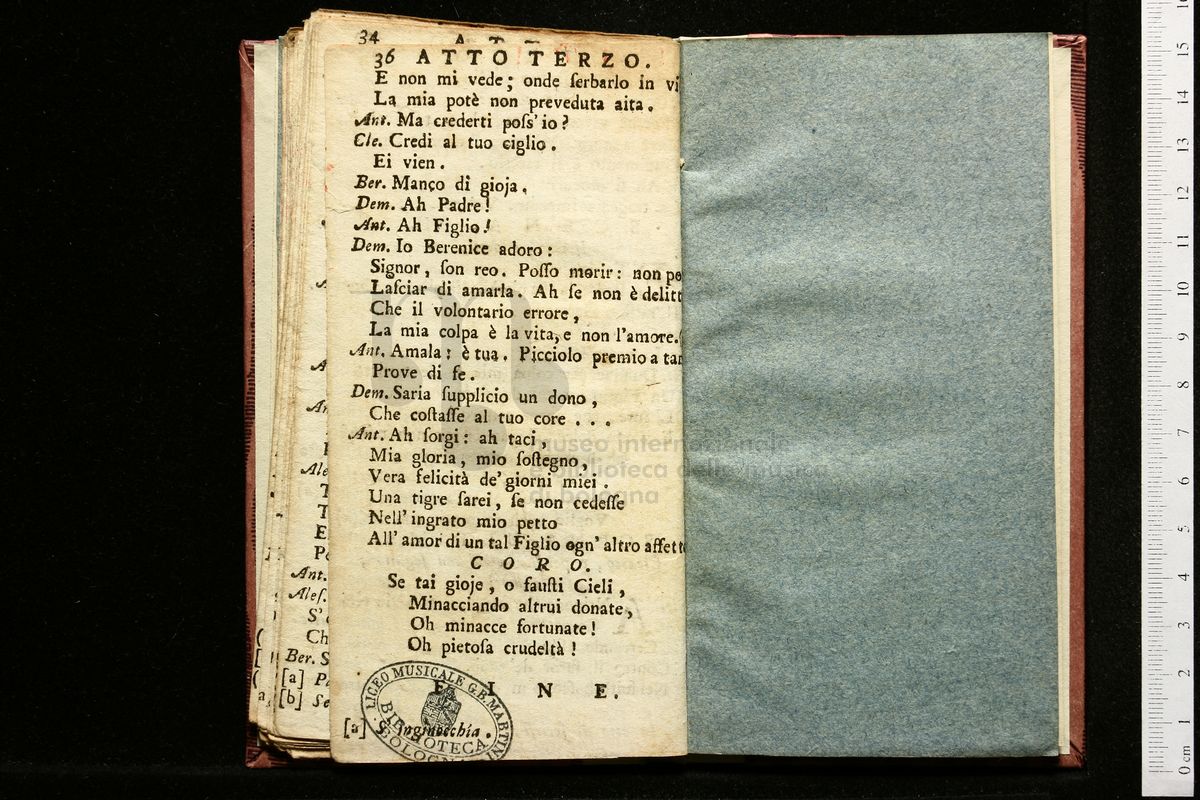 34
36 ATTO TERZO.
E non mi vede; onde ſerbarlo in vi
La mia potè non preveduta aita.
Ant. Ma crederti poſs'io?
Cle. Credi al tuo ciglio.
Ei vien.
Ber. Manco di gioja.
Dem. Ah Padre!
Ant. Ah Figlio!
Dem. Io Berenice adoro:
Signor, ſon reo. Poſſo morir: non po
Laſciar di amarla. Ah ſe non è delitt
Che il volontario errore,
La mia colpa è la vita, e non l'amore.
Ant. Amala: è tua. Picciolo premio a tan
Prove di fe.
Dem. Saria ſupplicio un dono,
Che coſtaſſe al tuo core ...
Ant. Ah ſorgi: ah taci,
Mia gloria, mio ſoſtegno,
Vera felicità de' giorni miei.
Una tigre ſarei, ſe non cedeſſe
Nell' ingrato mio petto
All' amor di un tal Figlio ogn' altro affett
CORO.
Se tai gioje, o fauſti Cieli,
Minacciando altrui donate,
Oh minacce fortunate!
Oh pietoſa crudeltà!
FINE.
[a] S' inginocchia.
LICEO MUSICALE G.B. MARTINI
BIBLIOTECA
BOLOGNA
museo internazionale
e biblioteca della musica
di bologna
Ale
T
T
E
Po
Ant.
Aleſ.
S'
Ch
Ber. S
[a] P
[b] Se
0 cm 1 2 3 4 5 6 7 8 9 10 11 12 13 14 15